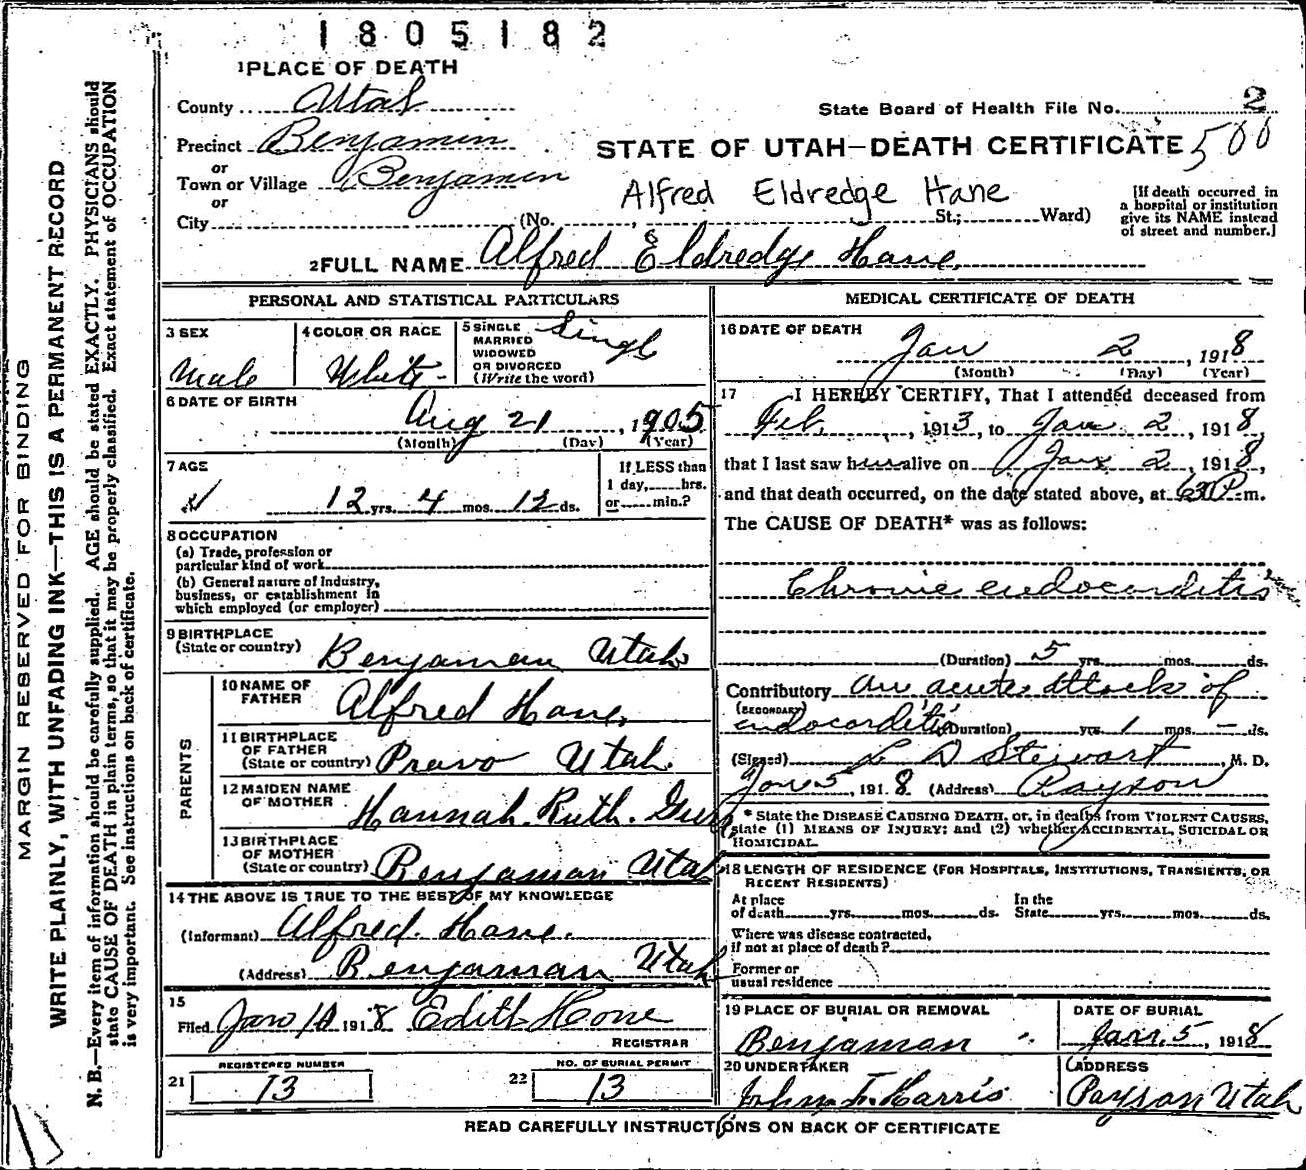 1805182
1 PLACE OF DEATH
County Utah
State Board of Health File No. 2
Precinct Benjamin
STATE OF UTAH—DEATH CERTIFICATE 500
or
Town or Village Benjamin
Alfred Eldredge Hone
[If death occurred in a hospital or institution give its NAME instead of street and number.]
or
City (No. St.; Ward)
2 FULL NAME Alfred Eldredge Hone
PERSONAL AND STATISTICAL PARTICULARS
3 SEX Male
4 COLOR OR RACE White
5 SINGLE MARRIED WIDOWED OR DIVORCED (Write the word) Singl
6 DATE OF BIRTH
Aug 21, 1905
(Month) (Day) (Year)
7 AGE
12 yrs. 4 mos. 12 ds.
If LESS than 1 day, hrs. or min.?
8 OCCUPATION
(a) Trade, profession or particular kind of work
(b) General nature of Industry, business, or establishment in which employed (or employer)
9 BIRTHPLACE
(State or country) Benjaman Utah
PARENTS
10 NAME OF FATHER Alfred Hone
11 BIRTHPLACE OF FATHER (State or country) Pravo Utah
12 MAIDEN NAME OF MOTHER Hannah Ruth
13 BIRTHPLACE OF MOTHER (State or country) Benjaman Utah
14 THE ABOVE IS TRUE TO THE BEST OF MY KNOWLEDGE
(Informant) Alfred Hone.
(Address) Benjaman Utah
15
Filed Jan 10 1918 Edith Hone
REGISTRAR
REGISTERED NUMBER
21 13
NO. OF BURIAL PERMIT
22 13
MEDICAL CERTIFICATE OF DEATH
16 DATE OF DEATH
Jan 2, 1918
(Month) (Day) (Year)
17 I HEREBY CERTIFY, That I attended deceased from
Feb, 1913, to Jan 2, 1918,
that I last saw him alive on Jan 2, 1918,
and that death occurred, on the date stated above, at 630 P.m.
The CAUSE OF DEATH* was as follows:
Chronic endocorditis
(Duration) 5 yrs. mos. ds.
Contributory An acute attack of
(SECONDARY) endocorditis (Duration) yrs. 1 mos. – ds.
(Signed) L D Stewart, M. D.
Jan 5, 1918 (Address) Payson
* State the DISEASE CAUSING DEATH, or, in deaths from VIOLENT CAUSES,
state (1) MEANS OF INJURY; and (2) whether ACCIDENTAL, SUICIDAL OR
HOMICIDAL.
18 LENGTH OF RESIDENCE (FOR HOSPITALS, INSTITUTIONS, TRANSIENTS, OR
RECENT RESIDENTS)
At place of death yrs. mos. ds. In the State yrs. mos. ds.
Where was disease contracted, if not at place of death?
Former or usual residence
19 PLACE OF BURIAL OR REMOVAL
Benjaman
DATE OF BURIAL
Jan. 5, 1918
20 UNDERTAKER
John F. Harris
ADDRESS
Payson Utah
READ CAREFULLY INSTRUCTIONS ON BACK OF CERTIFICATE
MARGIN RESERVED FOR BINDING
WRITE PLAINLY, WITH UNFADING INK—THIS IS A PERMANENT RECORD
N. B.—Every item of information should be carefully supplied. AGE should be stated EXACTLY. PHYSICIANS should
state CAUSE OF DEATH in plain terms, so that it may be properly classified. Exact statement of OCCUPATION
is very important. See instructions on back of certificate.